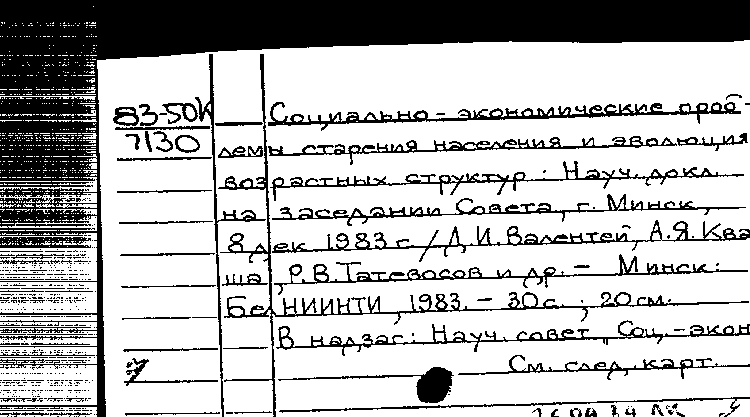 83-50К Социально-экономические проб-
7130 лемы старения населения и эволюция
возрастных структур : Науч. докл.
на заседании Совета, г. Минск,
8 дек. 1983 г. / Д.И. Валентей, А.Я. Ква
ша, Р.В. Татевосов и др. - Минск:
БелНИИНТИ, 1983. - 30 с. ; 20 см.
В надзаг.: Науч. совет "Соц.-экон
См. след. карт.